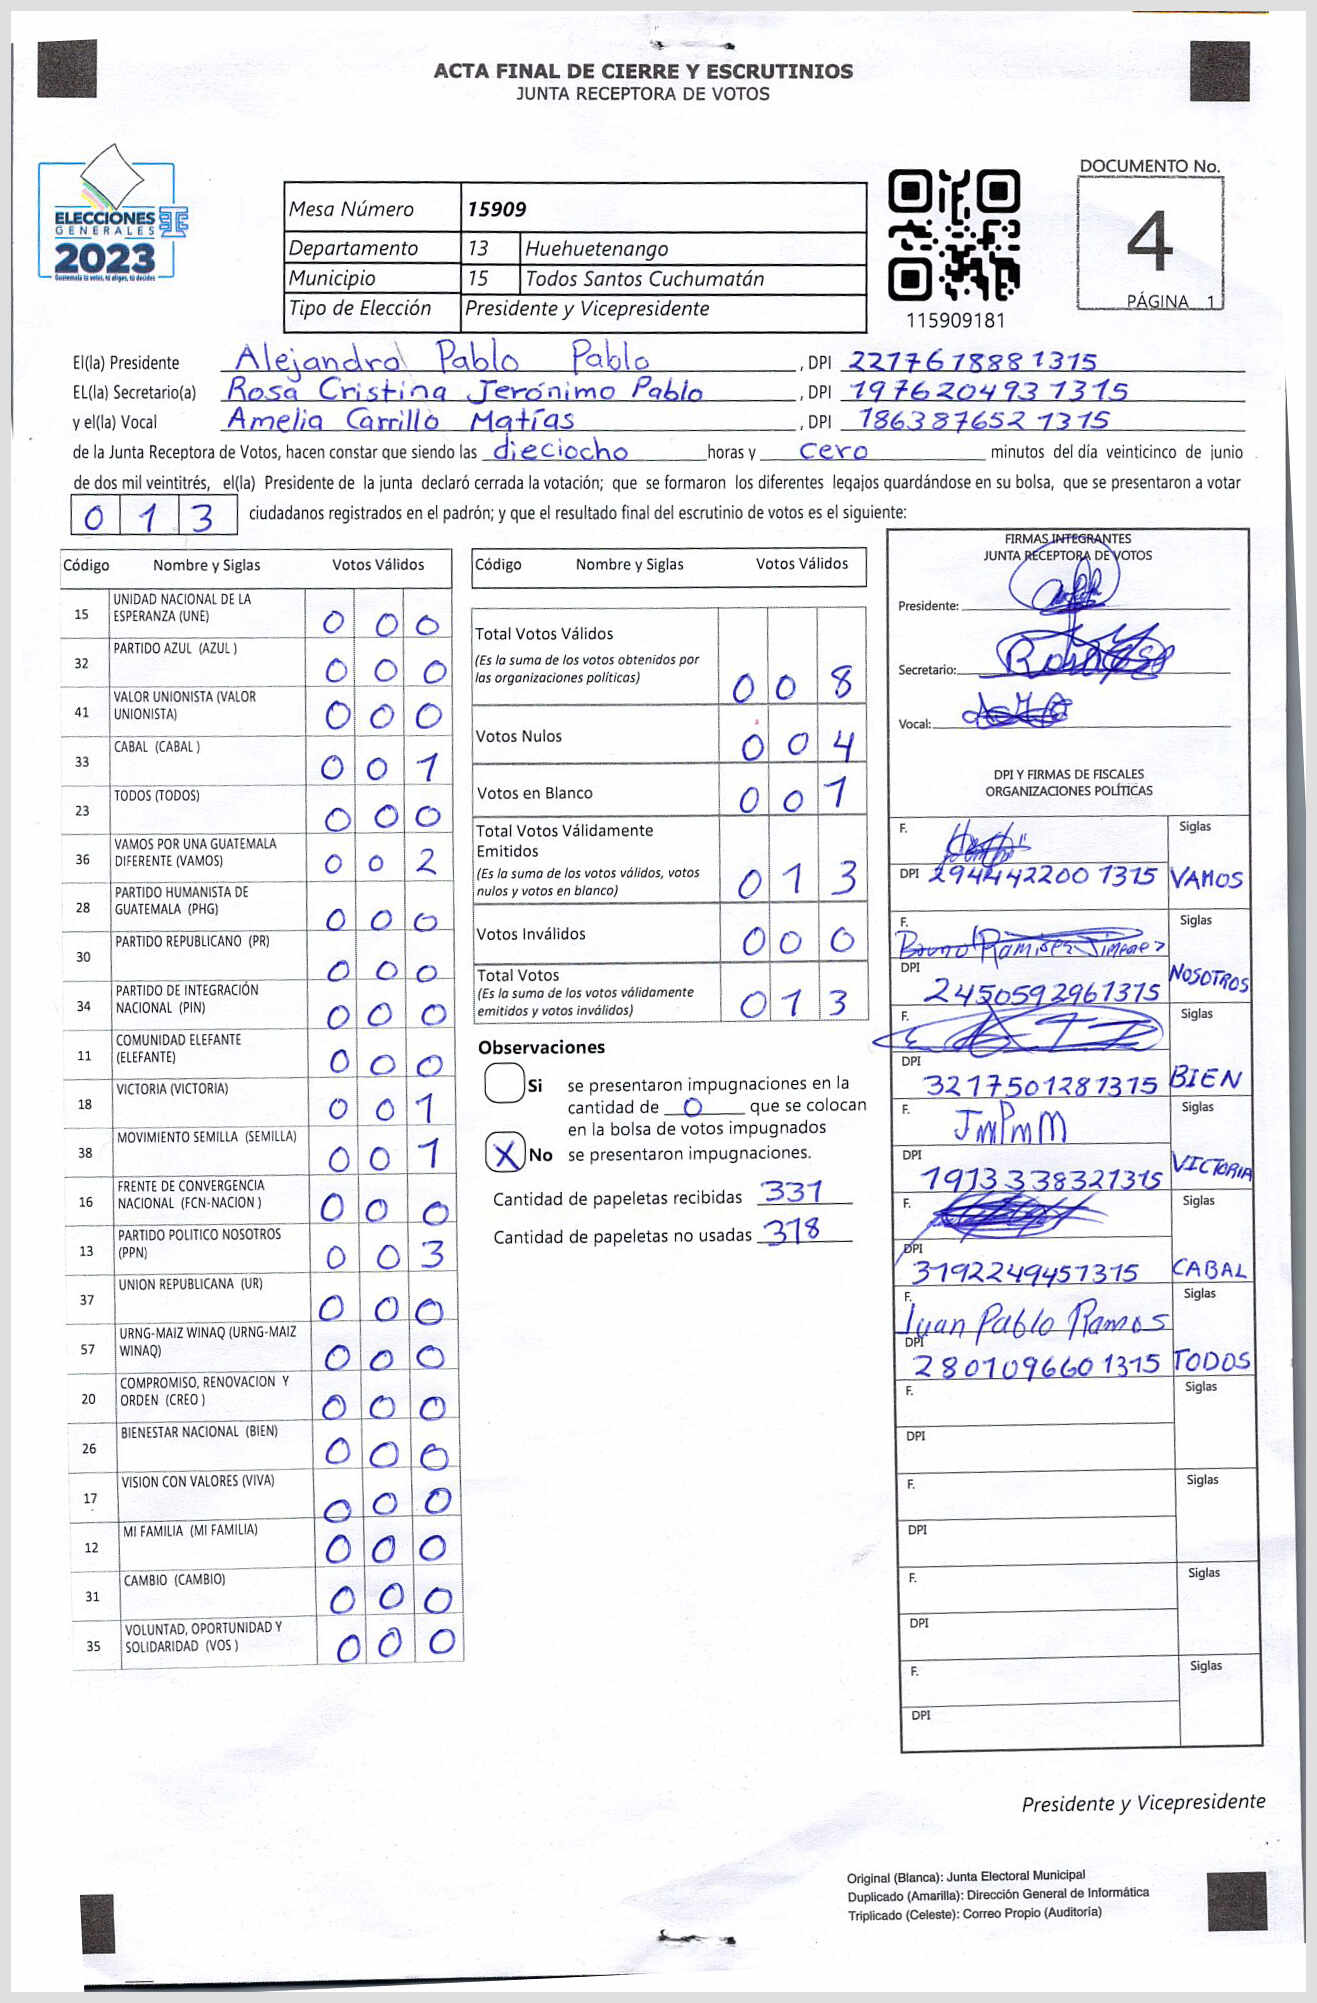 ACTA FINAL DE CIERRE Y ESCRUTINIOS
JUNTA RECEPTORA DE VOTOS
ELECCIONES
GENERALES
2023
Mesa Número 15909
Departamento 13 Huehuetenango
Municipio 15 Todos Santos Cuchumatán
Tipo de Elección Presidente y Vicepresidente
115909181
DOCUMENTO No.
4
PÁGINA 1
El(la) Presidente Alejandro Pablo Pablo, DPI 2217618881315
EL(la) Secretario(a) Rosa Cristina Jerónimo Pablo, DPI 1976204931315
y el(la) Vocal Amelia Carrillo Matías, DPI 1863876521315
de la Junta Receptora de Votos, hacen constar que siendo las dieciocho horas y cero minutos del día veinticinco de junio
de dos mil veintitrés, el(la) Presidente de la junta declaró cerrada la votación; que se formaron los diferentes legajos guardándose en su bolsa, que se presentaron a votar
0 1 3 ciudadanos registrados en el padrón; y que el resultado final del escrutinio de votos es el siguiente:
Código Nombre y Siglas Votos Válidos
15 UNIDAD NACIONAL DE LA ESPERANZA (UNE) 0 0 0
32 PARTIDO AZUL (AZUL ) 0 0 0
41 VALOR UNIONISTA (VALOR UNIONISTA) 0 0 0
33 CABAL (CABAL ) 0 0 1
23 TODOS (TODOS) 0 0 0
36 VAMOS POR UNA GUATEMALA DIFERENTE (VAMOS) 0 0 2
28 PARTIDO HUMANISTA DE GUATEMALA (PHG) 0 0 0
30 PARTIDO REPUBLICANO (PR) 0 0 0
34 PARTIDO DE INTEGRACIÓN NACIONAL (PIN) 0 0 0
11 COMUNIDAD ELEFANTE (ELEFANTE) 0 0 0
18 VICTORIA (VICTORIA) 0 0 1
38 MOVIMIENTO SEMILLA (SEMILLA) 0 0 1
16 FRENTE DE CONVERGENCIA NACIONAL (FCN-NACION ) 0 0 0
13 PARTIDO POLITICO NOSOTROS (PPN) 0 0 3
37 UNION REPUBLICANA (UR) 0 0 0
57 URNG-MAIZ WINAQ (URNG-MAIZ WINAQ) 0 0 0
20 COMPROMISO, RENOVACION Y ORDEN (CREO ) 0 0 0
26 BIENESTAR NACIONAL (BIEN) 0 0 0
17 VISION CON VALORES (VIVA) 0 0 0
12 MI FAMILIA (MI FAMILIA) 0 0 0
31 CAMBIO (CAMBIO) 0 0 0
35 VOLUNTAD, OPORTUNIDAD Y SOLIDARIDAD (VOS ) 0 0 0
Código Nombre y Siglas Votos Válidos
Total Votos Válidos 0 0 8
(Es la suma de los votos obtenidos por
las organizaciones políticas)
Votos Nulos 0 0 4
Votos en Blanco 0 0 1
Total Votos Válidamente
Emitidos 0 1 3
(Es la suma de los votos válidos, votos
nulos y votos en blanco)
Votos Inválidos 0 0 0
Total Votos 0 1 3
(Es la suma de los votos válidamente
emitidos y votos inválidos)
Observaciones
Si se presentaron impugnaciones en la
cantidad de 0 que se colocan
en la bolsa de votos impugnados
X No se presentaron impugnaciones.
Cantidad de papeletas recibidas 331
Cantidad de papeletas no usadas 318
FIRMAS INTEGRANTES
JUNTA RECEPTORA DE VOTOS
Presidente:
Secretario:
Vocal:
DPI Y FIRMAS DE FISCALES
ORGANIZACIONES POLÍTICAS
F. Siglas
DPI 2944422001315 VAMOS
F. Bruno Ramirez Jimenez Siglas
DPI 2450592961315 NOSOTROS
F. Siglas
DPI 3217501281315 BIEN
F. JmPmM Siglas
DPI 1913338321315 VICTORIA
F. Siglas
DPI 3192249451315 CABAL
F. Juan Pablo Ramos Siglas
DPI 2801096601315 TODOS
F. Siglas
DPI
F. Siglas
DPI
F. Siglas
DPI
F. Siglas
DPI
Presidente y Vicepresidente
Original (Blanca): Junta Electoral Municipal
Duplicado (Amarilla): Dirección General de Informática
Triplicado (Celeste): Correo Propio (Auditoría)